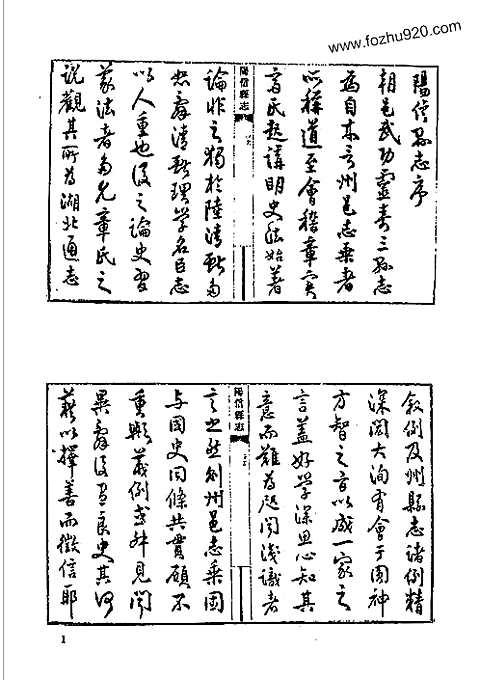 www.fozhu920.com
陽信縣志序
朝邑武功靈壽三縣志
爲自來言州邑志乘者
所稱道至會稽章實
齋氏起講明史法始著
陽信縣志
論非之獨於陸清獻多
恕辭清獻理學名臣志
以人重也後之論史習
義法者多允章氏之
說觀其所爲湖北通志
敘例及州縣志諸例精
深閎大洵有會于圓神
方智之旨以成一家之
言蓋好學深思心知其
意而難爲淺聞淺識者
陽信縣志
言之然則州邑志乘固
与國史同條共貫顧不
重歟義例或舛見聞
異辭後有良史其何
藉以擇善而徵信耶
1